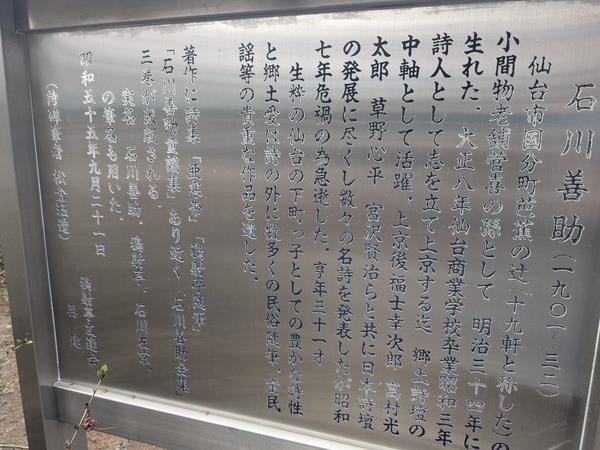 石川善助（一九〇一～三二）
仙台市国分町芭蕉の辻（十九軒と称した）の
小間物老舗営喜の孫として　明治三十四年に
生れた。大正八年仙台商業学校卒業昭和三年
詩人として志を立て上京する迄　郷土詩壇の
中軸として活躍。上京後福士幸次郎　高村光
太郎　草野心平　宮沢賢治らと共に日本詩壇
の発展に尽くし数々の名詩を発表したが昭和
七年危禍の為急逝した。亨年三十一才
生粋の仙台の下町っ子としての豊かな詩性
と郷土愛は詩の外に数多くの民俗随筆、童民
謡等の貴重な作品を遺した。
著作に詩集「亜寒帯」「鴉射亭随筆」
「石川善助童謡集」あり近く「石川善助全集」
三巻が出版される。
実名　石川善助、鴉射亭、石川
の筆名も用いた。
昭和五十五年九月二十一日
鴉射亭友達会
建
（詩碑筆者